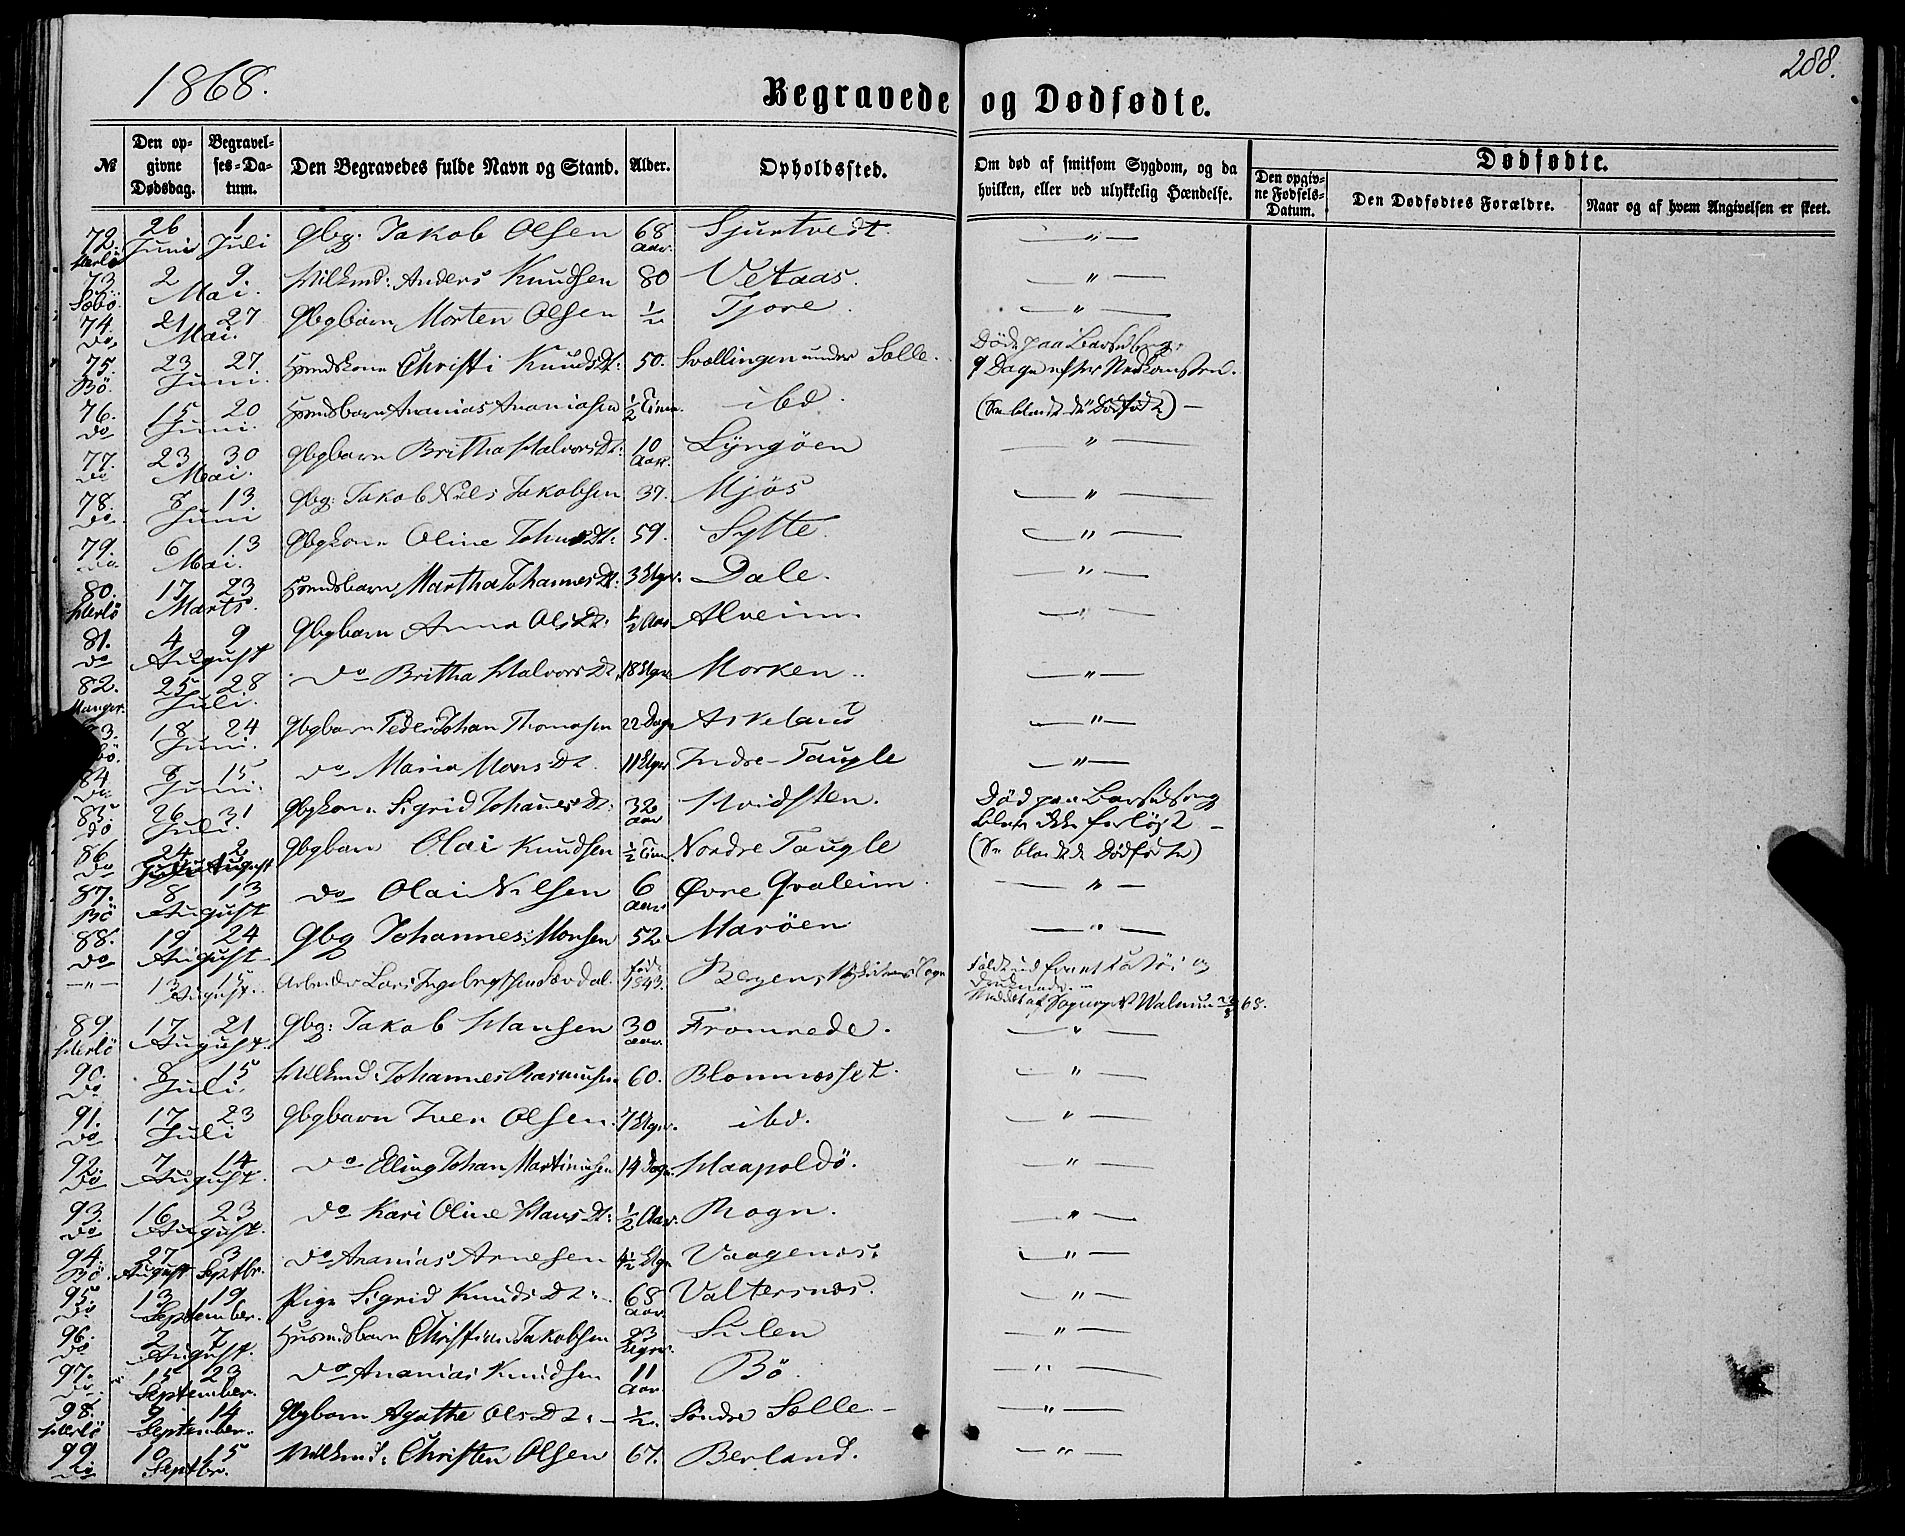 1868.
288.
Begravede og Dødfødte.
№ Den opgivne Dødsdag. Begravelses-Datum. Den Begravedes fulde Navn og Stand. Alder. Opholdssted. Om død af smitsom Sygdom, og da hvilken, eller ved ulykkelig Hændelse. Dødfødte.
Den opgivne Fødsels-Datum. Den Dødfødtes Forældre. Naar og af hvem Angivelsen er skeet.
72. Herlö 26 Juni 1 Juli Gbg: Jakob Olsen 68 Aar. Sjurtvedt. — " —
73. Sæbö 2 9 Mai. Vilkmd: Anders Knudsen 80 Vetaas. — " —
74. Do 21 27 Mai. Gbgbarn Morten Olsen ½ Tjore. — " —
75. Bö. 23 27. Juni. Huusmdskone Christi KnudsDt: 50. Svællingen under Solle. Døde paa Barselseng, 9 Dage efter Nedkomsten.
76. do 15 20 Juni. Huusmdsbarn Ananias Ananiasen ½ Time. ibd. (Se blandt de Dødfødte) —
77. Do 23 30 Mai. Gbgbarn Britha HalvorsDt: 10 Aar. Lyngöen — " —
78. Do 8 13 Juni Gbg: Jakob Nils Jakobsen 37. Mjös — " —
79. Do 6 13 Mai. Gbgkone Oline JohnsDt: 59. Sylte. — " —
80. Herlö 17 23 Marts. Huusmdsbarn Martha JohannesDt: 3 Uger. Dale. — " —
81. do 4 9 August Gbgbarn Anna OlsDt: ½ Aar Alveim — " —
82. Manger. 25 28 Juli. Do Britha HalvorsDt. 18 Uger Morken.. — " —
83. 18 24 Juni. Gbgbarn Peder Johan Thomasen 22 Dage Askeland — " —
84. Do 8 15. Juni. Do Maria MonsDt. 11 Uger Indre-Taugle — " —
85. do 26 31 Juli. Gbgkone Sigrid JohannesDt: 32 aar Hvidsten. Død paa Barselseng Blev ikke forløst —
86. Do 24 Juli 2 August Gbgbarn Olai Knudsen ½ Time. Nordre Taugle (Se blandt de Dødfødte)
87. Bö 8 13 August do Olai Nilsen 6 Aar Øvre Qvaleim. — " —
88. do 19 24 August Gbg Johannes Monsen 52 Marøen — " —
— " — 13 15 August. Arbeider Lars Ingebrigtsen født 1843. Bergens Sogn
Sogneprest 68.
89. Herlö 17 21 August. Gbg: Jakob Hansen 30 aar Fromrede. — " —
90. Do 8 15 Juli. Vilkmd: Johannes Rasmusen 60. Blomnæsset. — " —
91. Do 17 23 Juli Gbgbarn Iver Olsen. 7 Uger. ibd. — " —
92. Do 7 14 August. do Elling Johan Martinusen 14 Dage. Haapoldö. — " —
93. Do 16 23 August. Do Kari Oline HansDt: ½ Aar. Rogn. — " —
94. Bö. 27 August 3 Septbr. do Ananias Arnesen 4½ Uge Vaagenes. — " —
95. Do 13 19 September. Pige Sigrid KnudsDt: 68 Aar. Valtersnæs. — " —
96. Do 2 7 August. Huusmdsbarn Christian Jakobsen 23 Uger. Sulen — " —
97. Do 15 23 September. do Ananias Knudsen 11 Aar. Bö — " —
98. Herlö 9 14 September. Gbgbarn Agathe OlsDt: — ½. Söndre Solle — — " —
99 Do 10 15 Septbr. Vilkmd: Christen Olsen 67. Berland. — " —